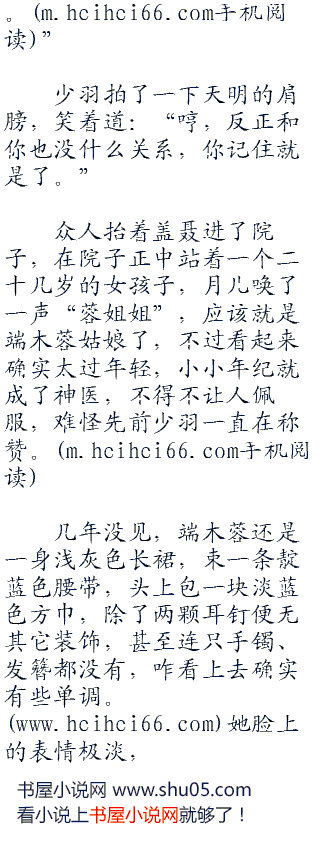 。(m.hcihci66.com手机阅
读)”
少羽拍了一下天明的肩
膀，笑着道：“哼，反正和
你也没什么关系，你记住就
是了。”
众人抬着盖聂进了院
子，在院子正中站着一个二
十几岁的女孩子，月儿唤了
一声“蓉姐姐”，应该就是
端木蓉姑娘了，不过看起来
确实太过年轻，小小年纪就
成了神医，不得不让人佩
服，难怪先前少羽一直在称
赞。(m.hcihci66.com手机阅
读)
几年没见，端木蓉还是
一身浅灰色长裙，束一条靛
蓝色腰带，头上包一块淡蓝
色方巾，除了两颗耳钉便无
其它装饰，甚至连只手镯、
发簪都没有，咋看上去确实
有些单调。
(www.hcihci66.com)她脸上
的表情极淡，
书屋小说网 www.shu05.com
看小说上书屋小说网就够了！